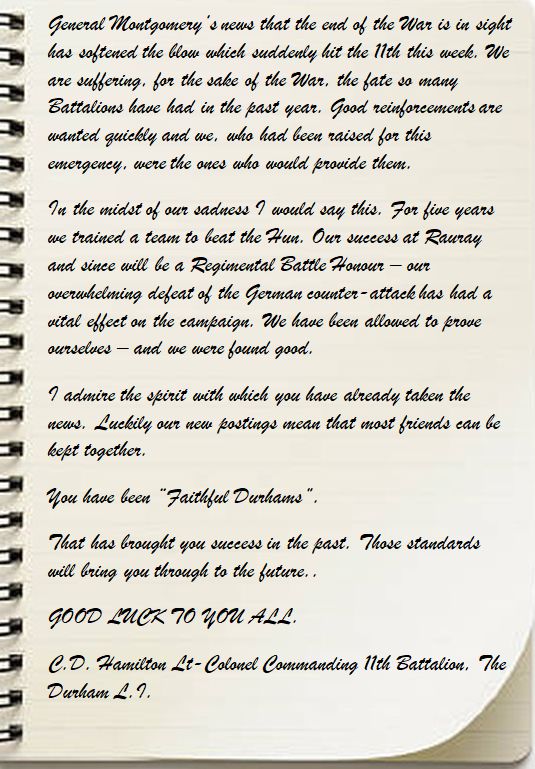 General Montgomery's news that the end of the War is in sight
has softened the blow which suddenly hit the 11th this week. We
are suffering, for the sake of the War, the fate so many
Battalions have had in the past year. Good reinforcements are
wanted quickly and we, who had been raised for this
emergency, were the ones who would provide them.
In the midst of our sadness I would say this. For five years
we trained a team to beat the Hun. Our success at Rauray
and since will be a Regimental Battle Honour – our
overwhelming defeat of the German counter-attack has had a
vital effect on the campaign. We have been allowed to prove
ourselves – and we were found good.
I admire the spirit with which you have already taken the
news. Luckily our new postings mean that most friends can be
kept together.
You have been "Faithful Durhams".
That has brought you success in the past. Those standards
will bring you through to the future..
GOOD LUCK TO YOU ALL.
C.D. Hamilton Lt-Colonel Commanding 11th Battalion, The
Durham L.I.